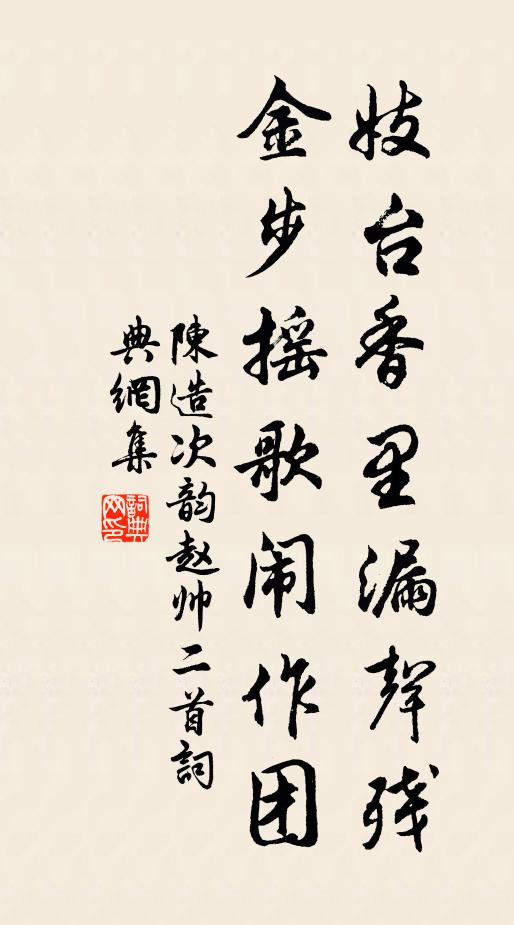 妓台香里漏聲残
金步摇歌闹作团
陳造次韵赵帅二首詞
典網集
詞典網印